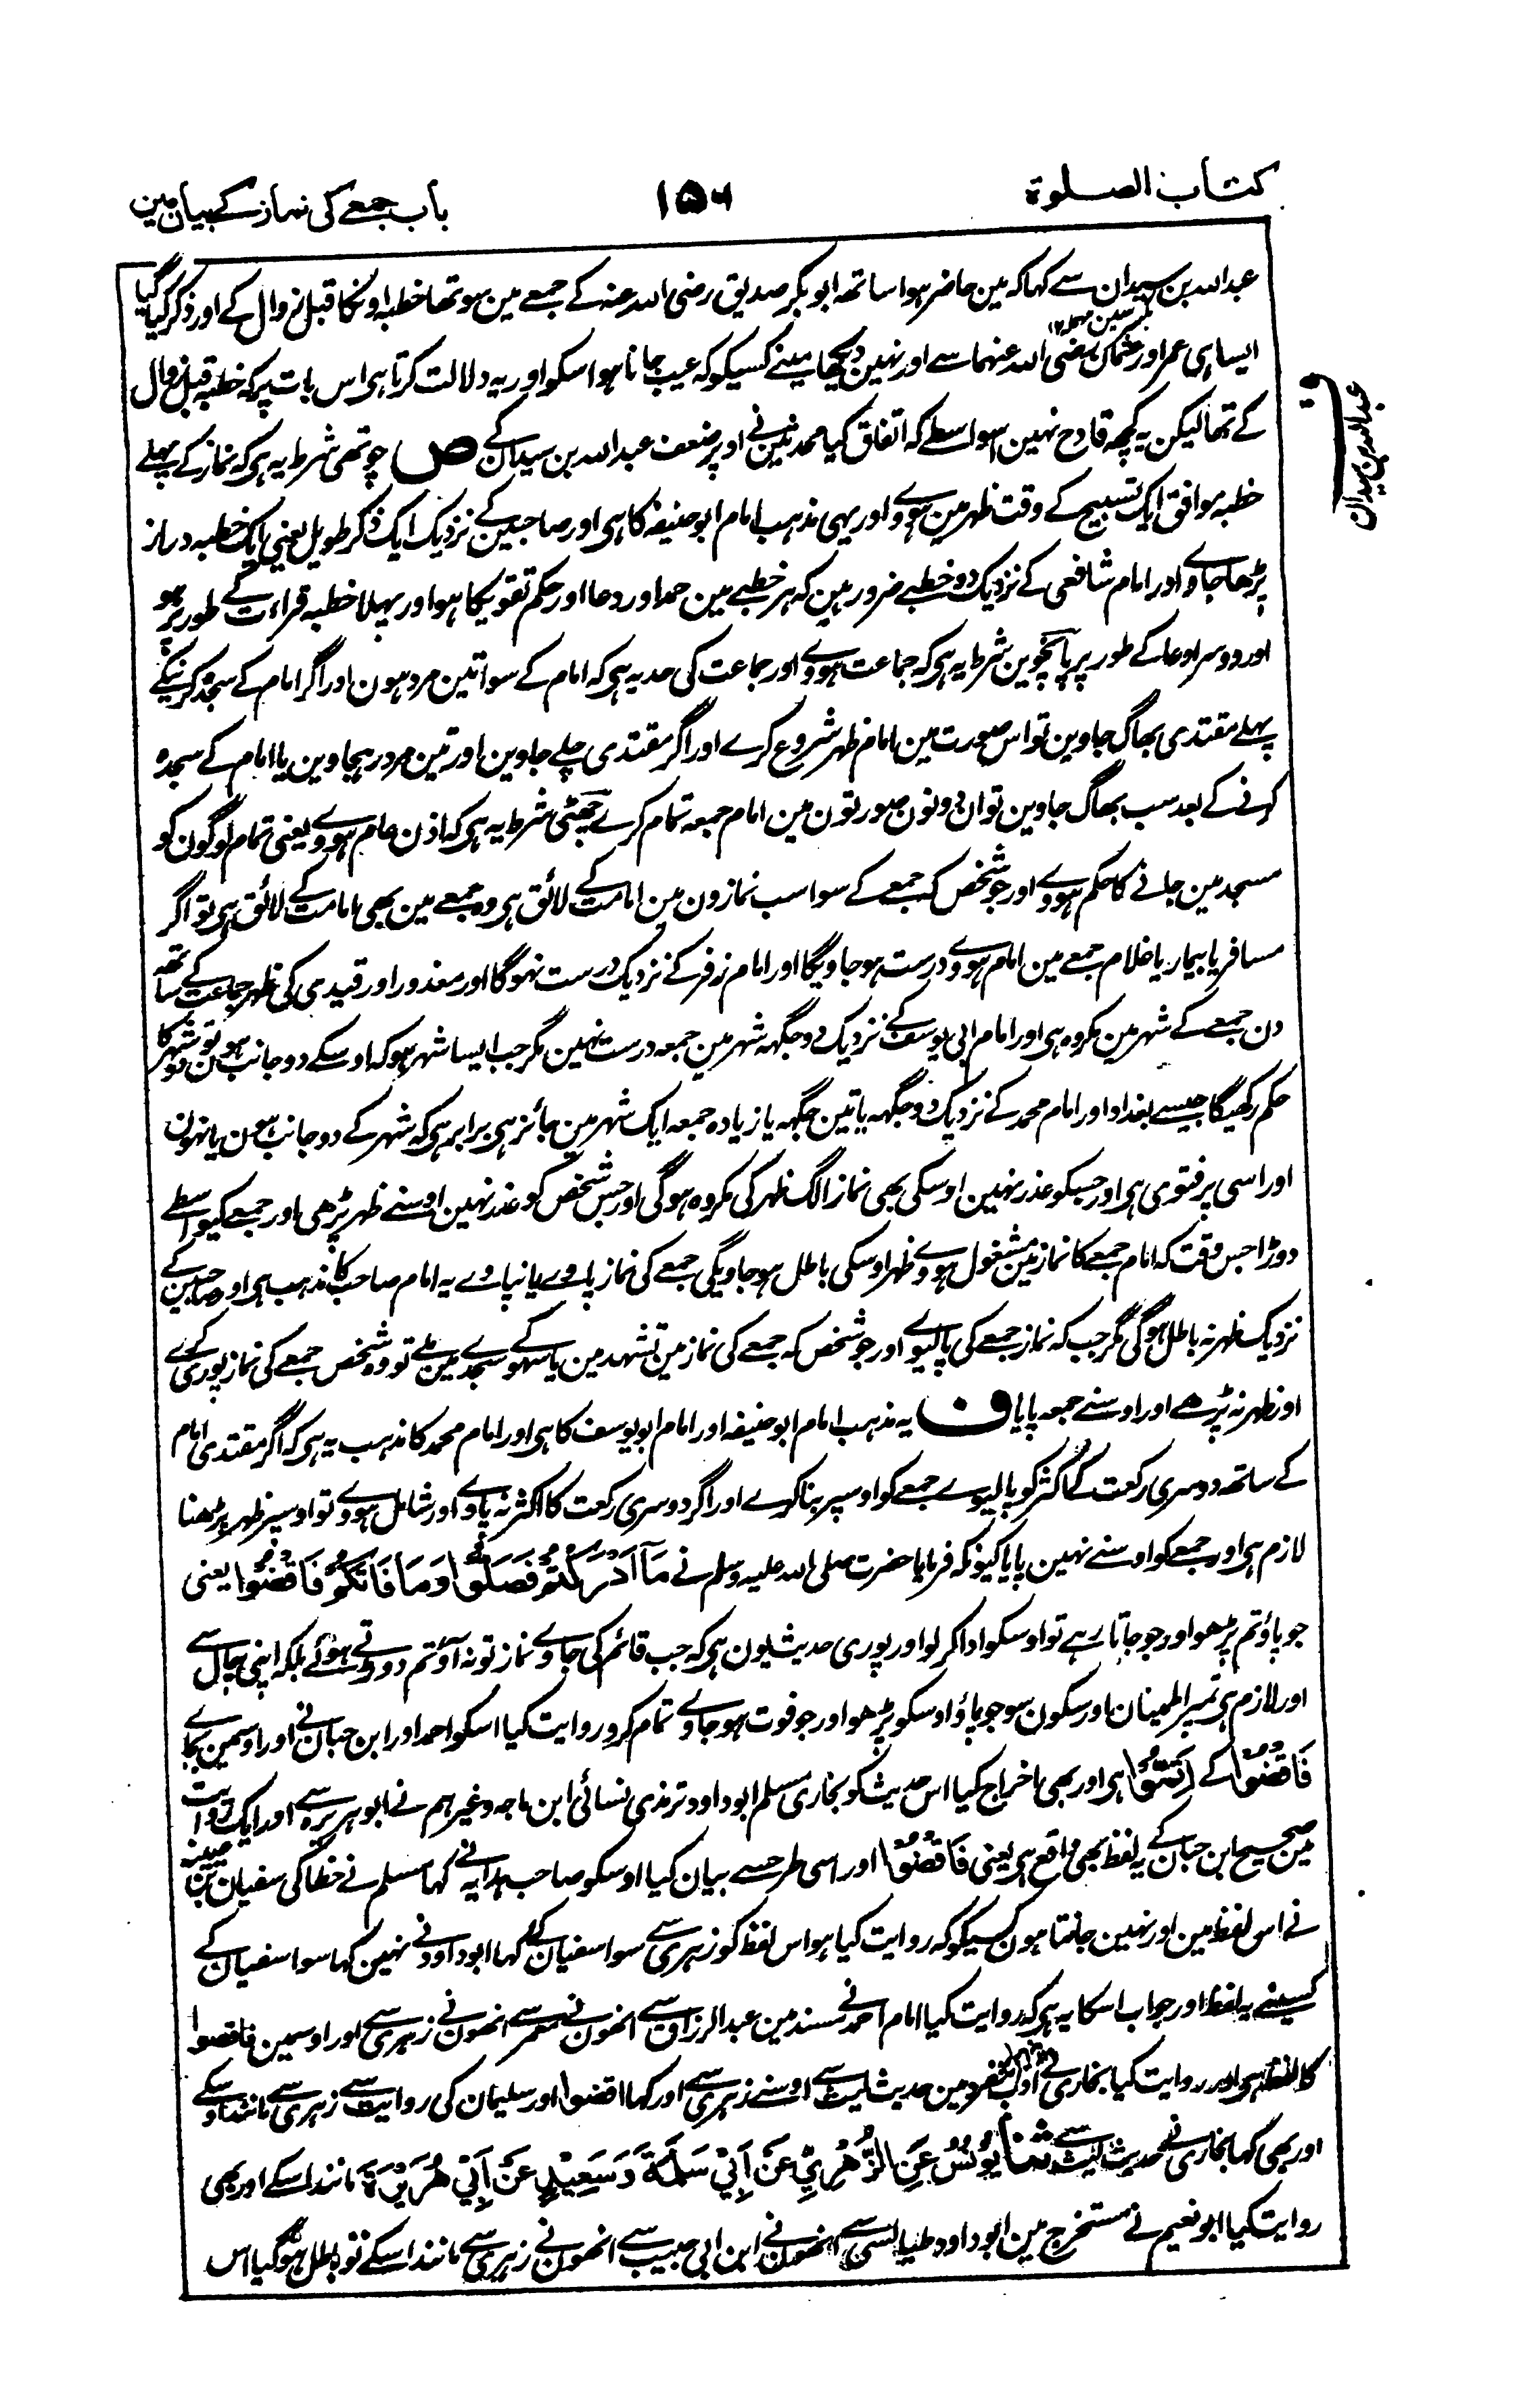 کتاب الصلوة
۱۵۶
باب جمعے کی نماز کے بیان مین
عبد اللہ بن سیدان سے کہا کہ مین حاضر ہوا ساتھہ ابو بکر صدیق رضی اللہ عنہ کے جمعے مین سو تھا خطبہ اونکا قبل زوال کے اور ذکر کیا گیا
ایسا ہی عمر اور عثمان رضی اللہ عنہما سے اور نہین دیکھا مینے کسیکو کہ عیب جانا ہو اسکو اور یہ دلالت کرتا ہی اس بات پر کہ خطبہ قبل زوال
کے تھا لیکن یہ کچھہ قادح نہین اسواسطے کہ اتفاق کیا محدثین نے اوپر ضعف عبد اللہ بن سیدان کے ص چوتھی شرط یہ ہی کہ نماز کے پہلے
خطبہ موافق ایک تسبیح کے وقت ظہر مین ہووے اور یہی مذہب امام ابو حنیفہ کا ہی اور صاحبین کے نزدیک ایک ذکر طویل یعنی ایک خطبہ دراز
پڑھا جاوے اور امام شافعی کے نزدیک دو خطبے ضرور ہین کہ ہر خطبے مین حمد اور دعا اور حکم تقویکا ہو اور پہلا خطبہ قراءت کے طور پر ہو
اور دوسرا دعا کے طور پر پانچوین شرط یہ ہی کہ جماعت ہووے اور جماعت کی حد یہ ہی کہ امام کے سوا تین مرد ہون اور اگر امام کے سجدہ کرنیکے
پہلے مقتدی بھاگ جاوین تو اس صورت مین امام ظہر شروع کرے اور اگر مقتدی چلے جاوین اور تین مرد رہجاوین یا امام کے سجدہ
کرنے کے بعد سب بھاگ جاوین تو ان دونون صورتون مین امام جمعہ تمام کرے چھٹی شرط یہ ہی کہ اذن عام ہووے یعنی تمام لوگون کو
مسجد مین جانے کا حکم ہووے اور جو شخص کہ جمعے کے سوا سب نمازون مین امامت کے لائق ہی وہ جمعے مین بھی امامت کے لائق ہی تو اگر
مسافر یا بیمار یا غلام جمعے مین امام ہووے درست ہو جاویگا اور امام زفر کے نزدیک درست نہوگا اور معذور اور قیدی کی ظہر جماعت کے ساتھہ
دن جمعے کے شہر مین مکروہ ہی اور امام ابی یوسف کے نزدیک دو جگہہ شہر مین جمعہ درست نہین مگر جب ایسا شہر ہو کہ اوسکے دو جانب ہون تو دو شہر کا
حکم رکھیگا جیسے بغداد اور امام محمد کے نزدیک دو جگہہ یا تین جگہہ یا زیادہ جمعہ ایک شہر مین جائز ہی برابر ہی کہ شہر کے دو جانب ہون یا نہون
اور اسی پر فتوی ہی اور جسکو عذر نہین اوسکی بھی نماز الگ ظہر کی مکروہ ہوگی اور جس شخص کو عذر نہین اوسنے ظہر پڑھی اور جمعے کیواسطے
دوڑا جس وقت کہ امام جمعے کا نماز مین مشغول ہووے ظہر اوسکی باطل ہو جاویگی جمعے کی نماز پاوے یا نپاوے یہ امام صاحب کا مذہب ہی اور صاحبین کے
نزدیک ظہر نہ باطل ہوگی مگر جب کہ نماز جمعے کی پالیوے اور جو شخص کہ جمعے کی نماز مین تشہد مین یا سہو کے سجدے مین ملے تو وہ شخص جمعے کی نماز پوری کرے
اور ظہر نہ پڑھے اور اوسنے جمعہ پایا ف یہ مذہب امام ابو حنیفہ اور امام ابو یوسف کا ہی اور امام محمد کا مذہب یہ ہی کہ اگر مقتدی امام
کے ساتھہ دوسری رکعت کے اکثر کو پالیوے جمعے کو اوسپر بنا کرے اور اگر دوسری رکعت کا اکثر نہ پاوے اور شامل ہووے تو اوسپر ظہر پڑھنا
لازم ہی اور جمعے کو اوسنے نہین پایا کیونکہ فرمایا حضرت صلی اللہ علیہ وسلم نے مَآ اَدْرَكْتُمْ فَصَلُّوْا وَمَا فَاتَكُمْ فَاقْضُوْا یعنی
جو پاؤ تم پڑھو اور جو جاتا رہے تو اوسکو ادا کر لو اور پوری حدیث یون ہی کہ جب قائم کی جاوے نماز تو نہ آؤ تم دوڑتے ہوئے بلکہ اپنی چال سے
اور لازم ہی تمپر اطمینان اور سکون سو جو پاؤ اوسکو پڑھو اور جو فوت ہو جاوے تمام کرو روایت کیا اسکو احمد اور ابن حبان نے اور اوسمین بجاے
فَاقْضُوْا کے اَتِمُّوْا ہی اور بھی اخراج کیا اس حدیث کو بخاری مسلم ابو داود ترمذی نسائی ابن ماجہ وغیرہم نے ابو ہریرہ سے اور ایک روایت
مین صحیح ابن حبان کے یہ لفظ بھی واقع ہی یعنی فَاقْضُوْا اور اسی طرح سے بیان کیا اوسکو صاحب ہدایہ نے کہا مسلم نے خطا کی سفیان بن عیینہ
نے اس لفظ مین اور نہین جانتا ہون کسیکو کہ روایت کیا ہو اس لفظ کو زہری سے سوا سفیان کے کہا ابو داود نے نہین کہا سوا سفیان کے
کسینے یہ لفظ اور جواب اسکا یہ ہی کہ روایت کیا امام احمد نے مسند مین عبد الرزاق سے انھون نے معمر سے انھون نے زہری سے اور اوسمین فاقضوا
کا لفظ ہی اور روایت کیا بخاری نے ادب مفرد مین حدیث لیث سے اوسنے زہری سے اور کہا اقضوا اور سلیمان کی روایت سے زہری سے مانند اوسکے
اور بھی کہا بخاری نے حدیث لیث سے ثنا یُوْنُسُ عَنِ الزُّهْرِيِّ عَنْ اَبِيْ سَلَمَةَ وَسَعِيْدٍ عَنْ اَبِيْ هُرَيْرَةَ مانند اسکے اور بھی
روایت کیا ابو نعیم نے مستخرج مین ابو داود طیالسی سے انھون نے ابن ابی حبیب سے انھون نے زہری سے مانند اسکے تو باطل ہو گیا اس
عبد اللہ بن سیدان